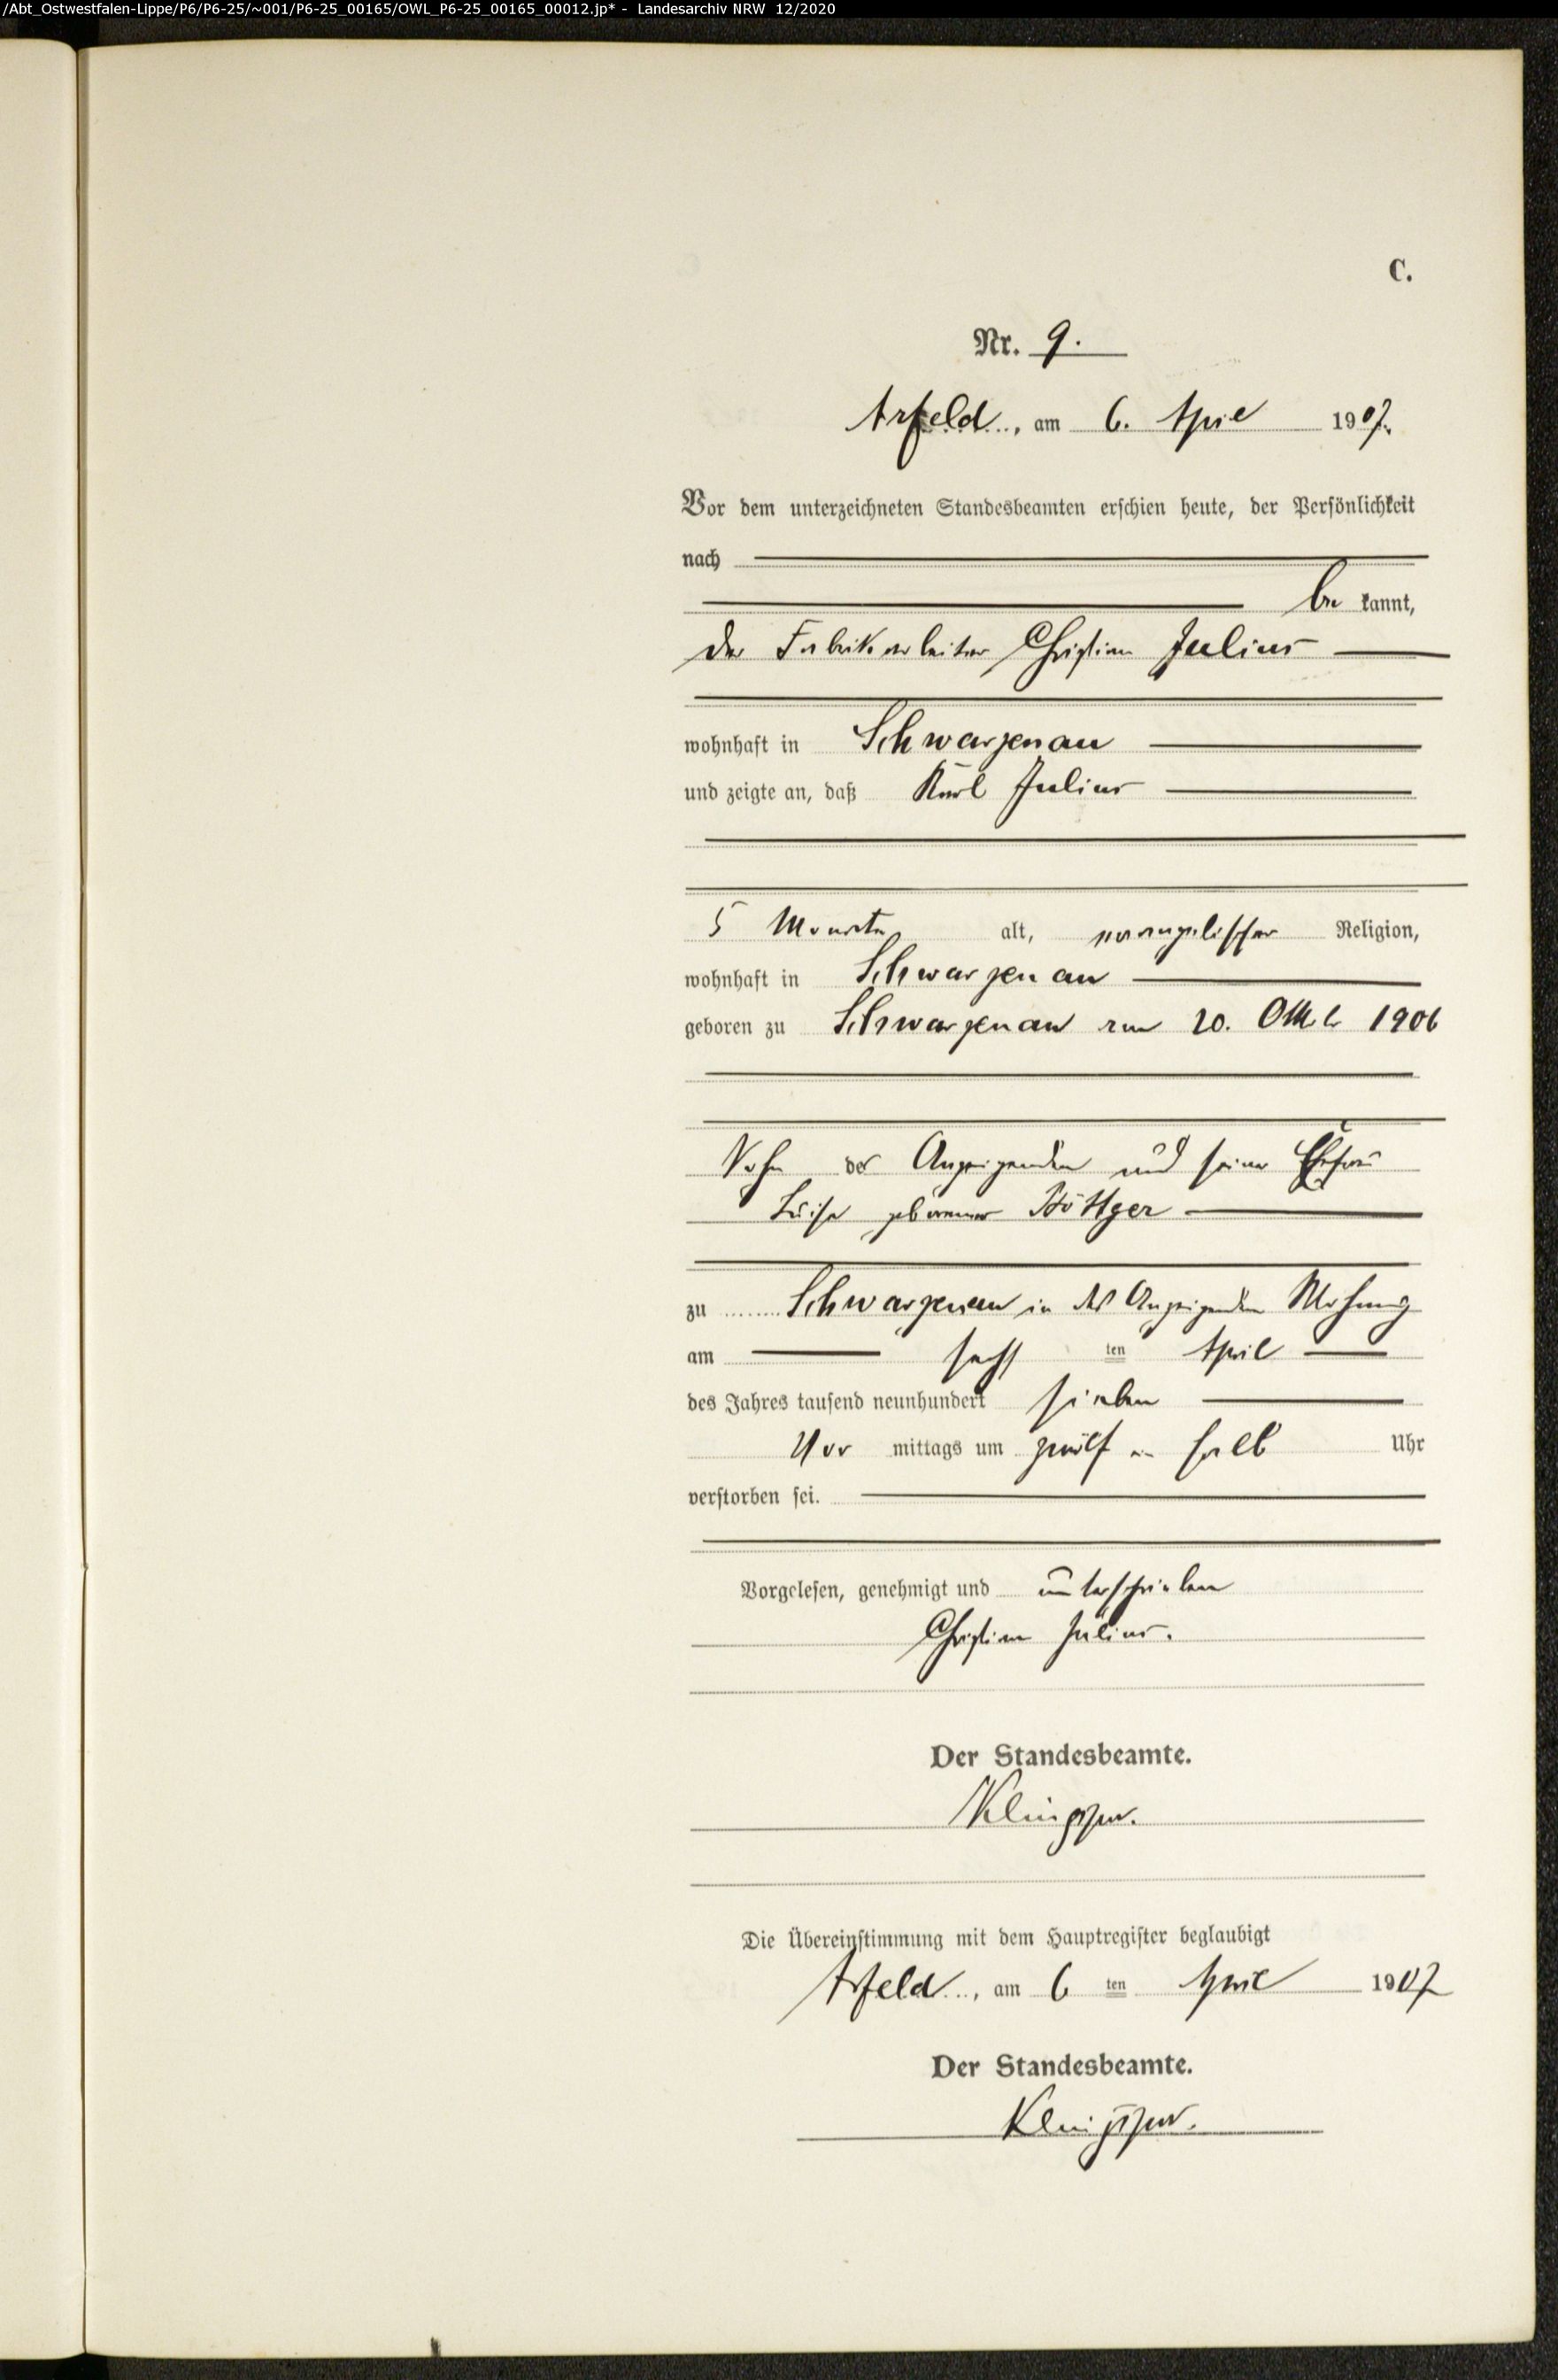 /Abt_Ostwestfalen-Lippe/P6/P6-25/~001/P6-25_00165/OWL_P6-25_00165_00012.jp* - Landesarchiv NRW 12/2020
C.
Nr. 9.
Arfeld, am 6. April 1907.
Vor dem unterzeichneten Standesbeamten erschien heute, der Persönlichkeit
nach
be kannt,
der Fabrikarbeiter Christian Julius
wohnhaft in Schwarzenau
und zeigte an, daß Karl Julius
5 Monate alt, evangelischer Religion,
wohnhaft in Schwarzenau
geboren zu Schwarzenau am 20. Oktob 1906
Sohn des Anzeigenden und seiner Ehefrau
Luise geborener Böttger
zu Schwarzenau in des Anzeigenden Wohnung
am sechs ten April
des Jahres tausend neunhundert sieben
Vor mittags um zwölf ein halb Uhr
verstorben sei.
Vorgelesen, genehmigt und unterschrieben
Christian Julius.
Der Standesbeamte.
Die Übereinstimmung mit dem Hauptregister beglaubigt
Arfeld, am 6 ten April 1907
Der Standesbeamte.